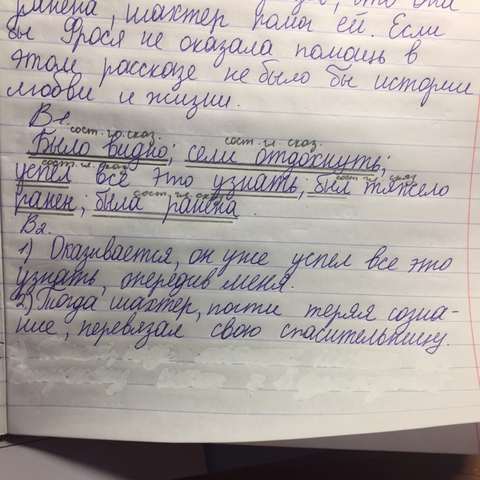 ранена, шахтер помог ей. Если
бы Фрося не оказала помощь в
этом рассказе не было бы истории
любви и жизни.
В1.
сост. гл. сказ. сост. гл. сказ.
Было видно; сели отдохнуть;
сост. гл. сказ. сост. гл. сказ.
успел все это узнать; был тяжело
сост. гл. сказ.
ранен, была ранена.
В2.
1) Оказывается, он уже успел все это
узнать, опередив меня.
2) Тогда шахтер, почти теряя созна-
ние, перевязал свою спасительницу.